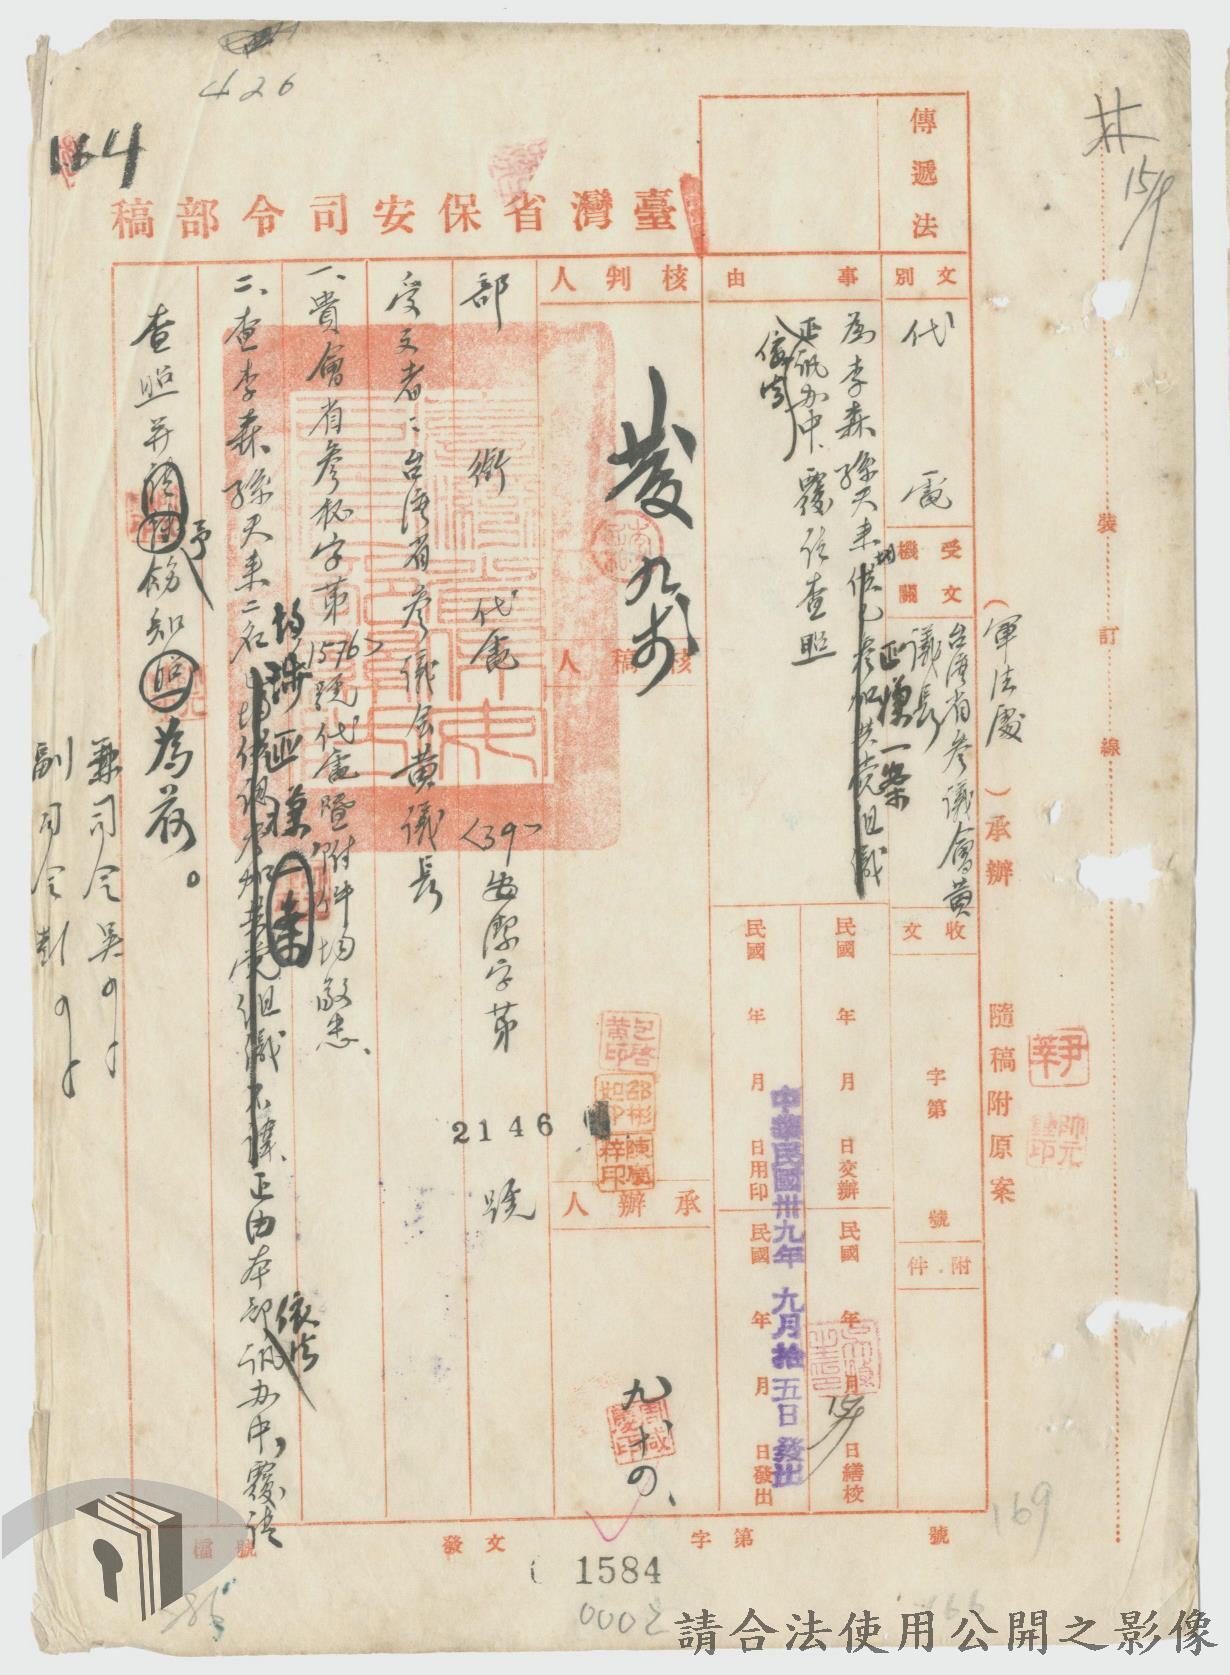 426
164
林
15/9
臺灣省保安司令部稿
傳遞法
(軍法處)承辦 隨稿附原案
裝訂線
文別
代電
受文機關
台灣省參議會黃議長
收文
字第
號
附件
事由
為李森
均供已參加共党組織
涉匪嫌一案
正訊办中、覆請查照
依法
民國 年 月 日交辦
民國 年 月 日繕校
15/9
民國 年 月 日用印
民國 年 月 日發出
中華民國卅九年九月拾五日發出
核判人
核稿人
承辦人
九、十四、
部銜代電 〈39〉安潔字第 2146 號
受文者:台灣省參議会黃議長
一、貴會省參秘字第〈1576〉號代電暨附件均敬悉、
二、查李森
二名
均涉匪嫌
案
正由本部訊办中,覆請
依法
查照并
予
飭知
照
為荷。
兼司令吳
副司令彭
檔號
發文
字第
號
1584
0002
169
166
385
邵彬如印
陳慶梓印
請合法使用公開之影像